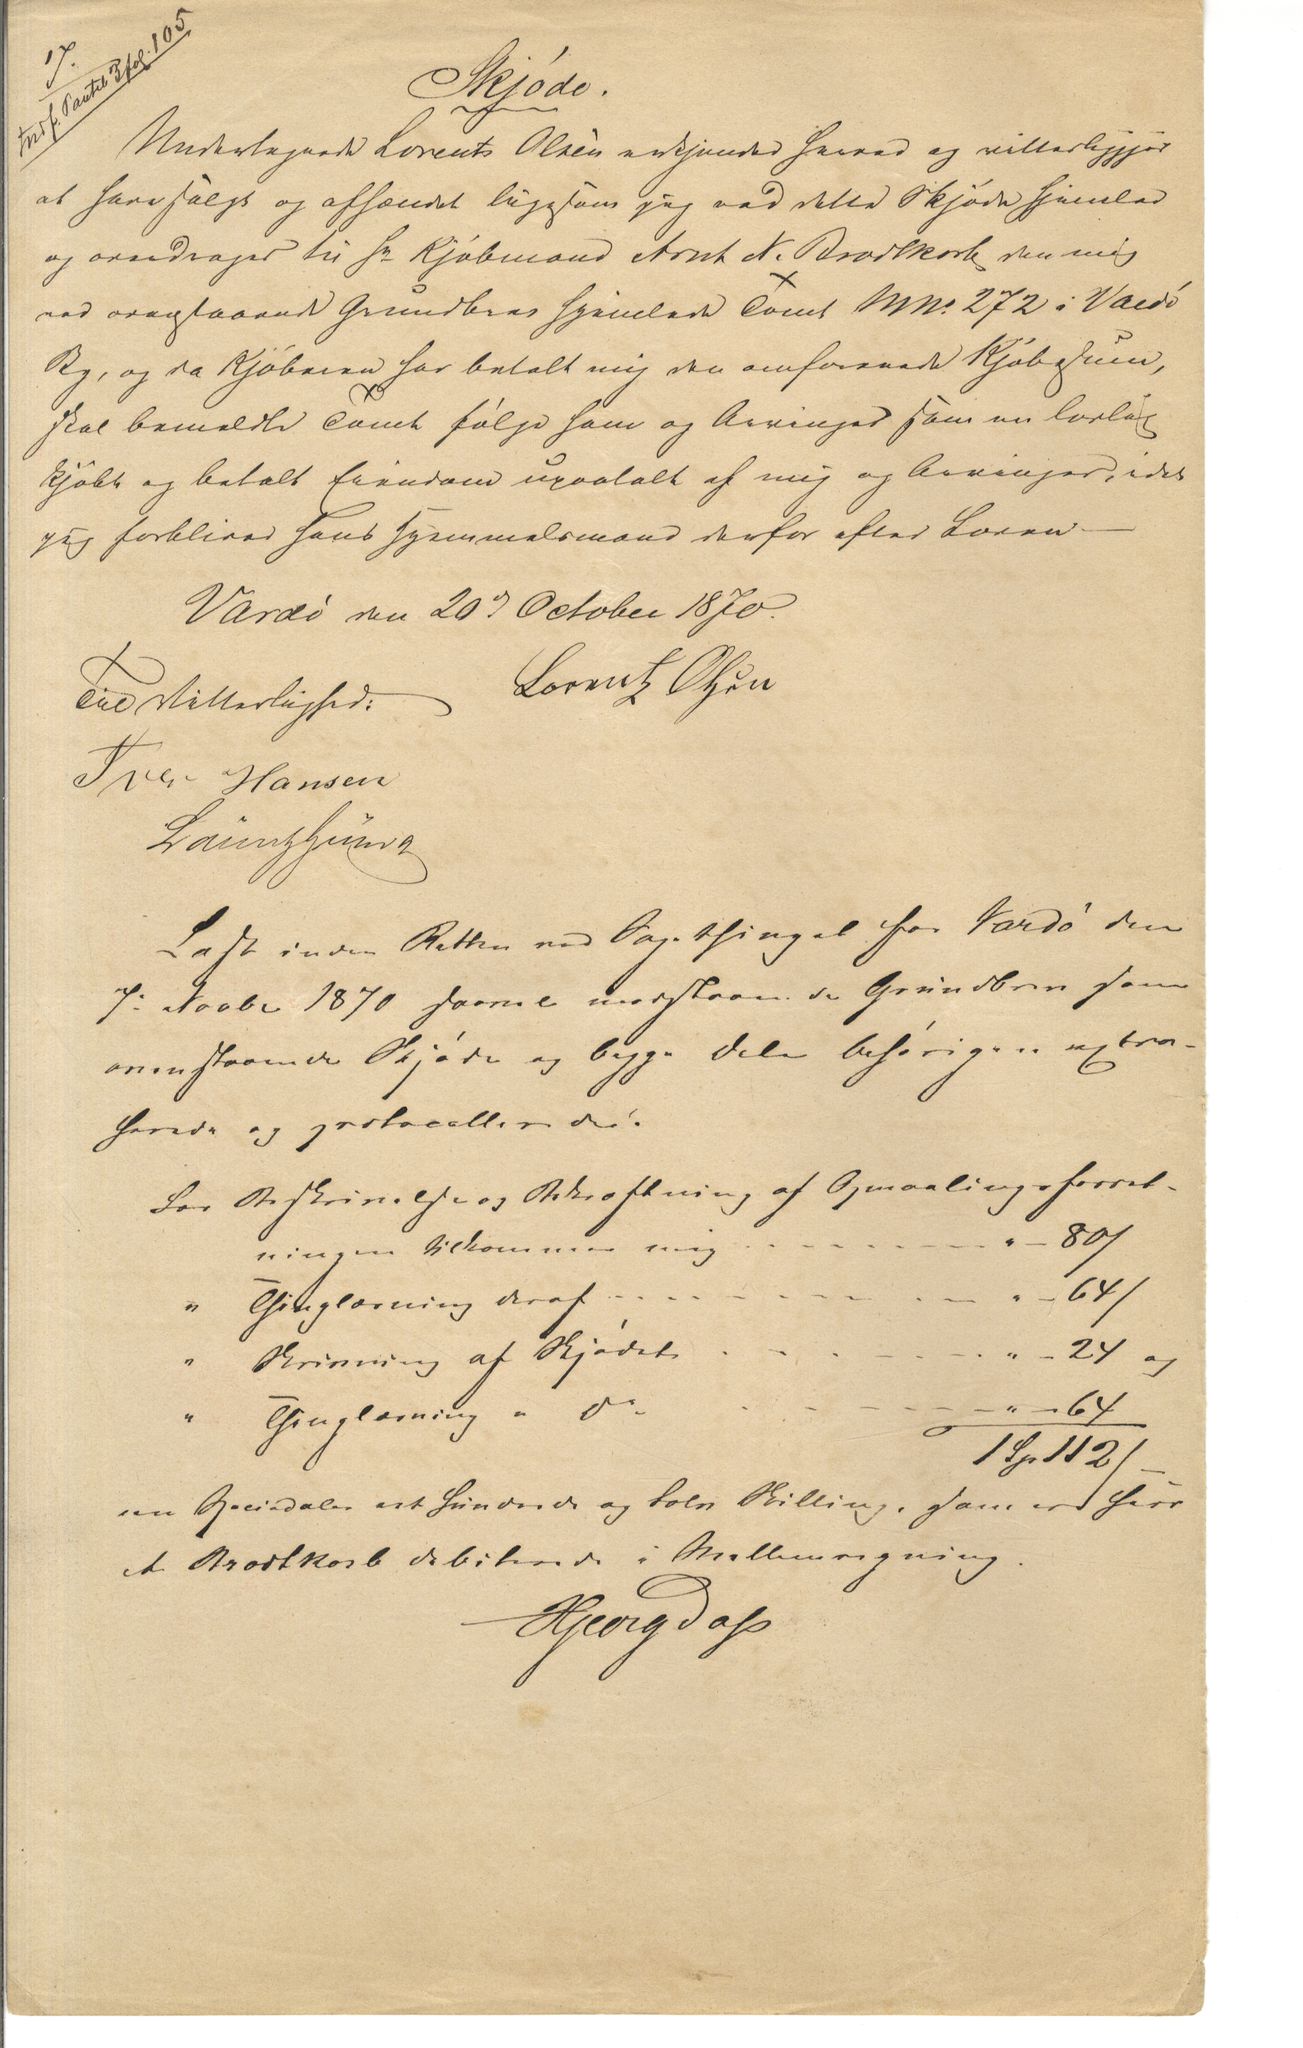 17.
Indf. Panteb 3 fol. 105
Skjøde.
Undertegnede Lorents Olsen erkjender herved og vitterliggjør
at have solgt og afhændet ligesom jeg ved dette Skjøde hjemler
og overdrager til Hr Kjøbmand Arnt N. Brodtkorb den mig
ved ovenstaaende Grundbrev hjemlede Tomt MNo 272 i Vardö
By, og da Kjøberen har betalt mig den omforenede Kjøbesum,
skal bemeldte Tomt følge ham og Arvinger som en lovlig
kjøbt og betalt Eiendom upaatalt af mig og Arvinger, idet
jeg forbliver hans Hjemmelsmand derfor efter Loven
Vardö den 20de October 1870.
Til Vitterlighed: Lorentz Olsen
Iver Hansen
Læst inden Retten ved Bythinget for Vardö den
7: Novbr 1870 saavel modstaaende Grundbrev som
ovenstaaende Skjøde og begge dele behørigen extra-
herede og protocollerede.
For Beskrivelse og Bekræftning af Opmaalingsforret-
ningen tilkommer mig " - 80/
" Thinglæsning deraf " - 64/
" Skrivning af Skjødet " - 24 og
" Thinglæsning " do " - 64
1 Sp 112/
en Speciedaler et hundrede og tolv Skilling, som er Herr
A Brodtkorb debiterede i Mellemregning.